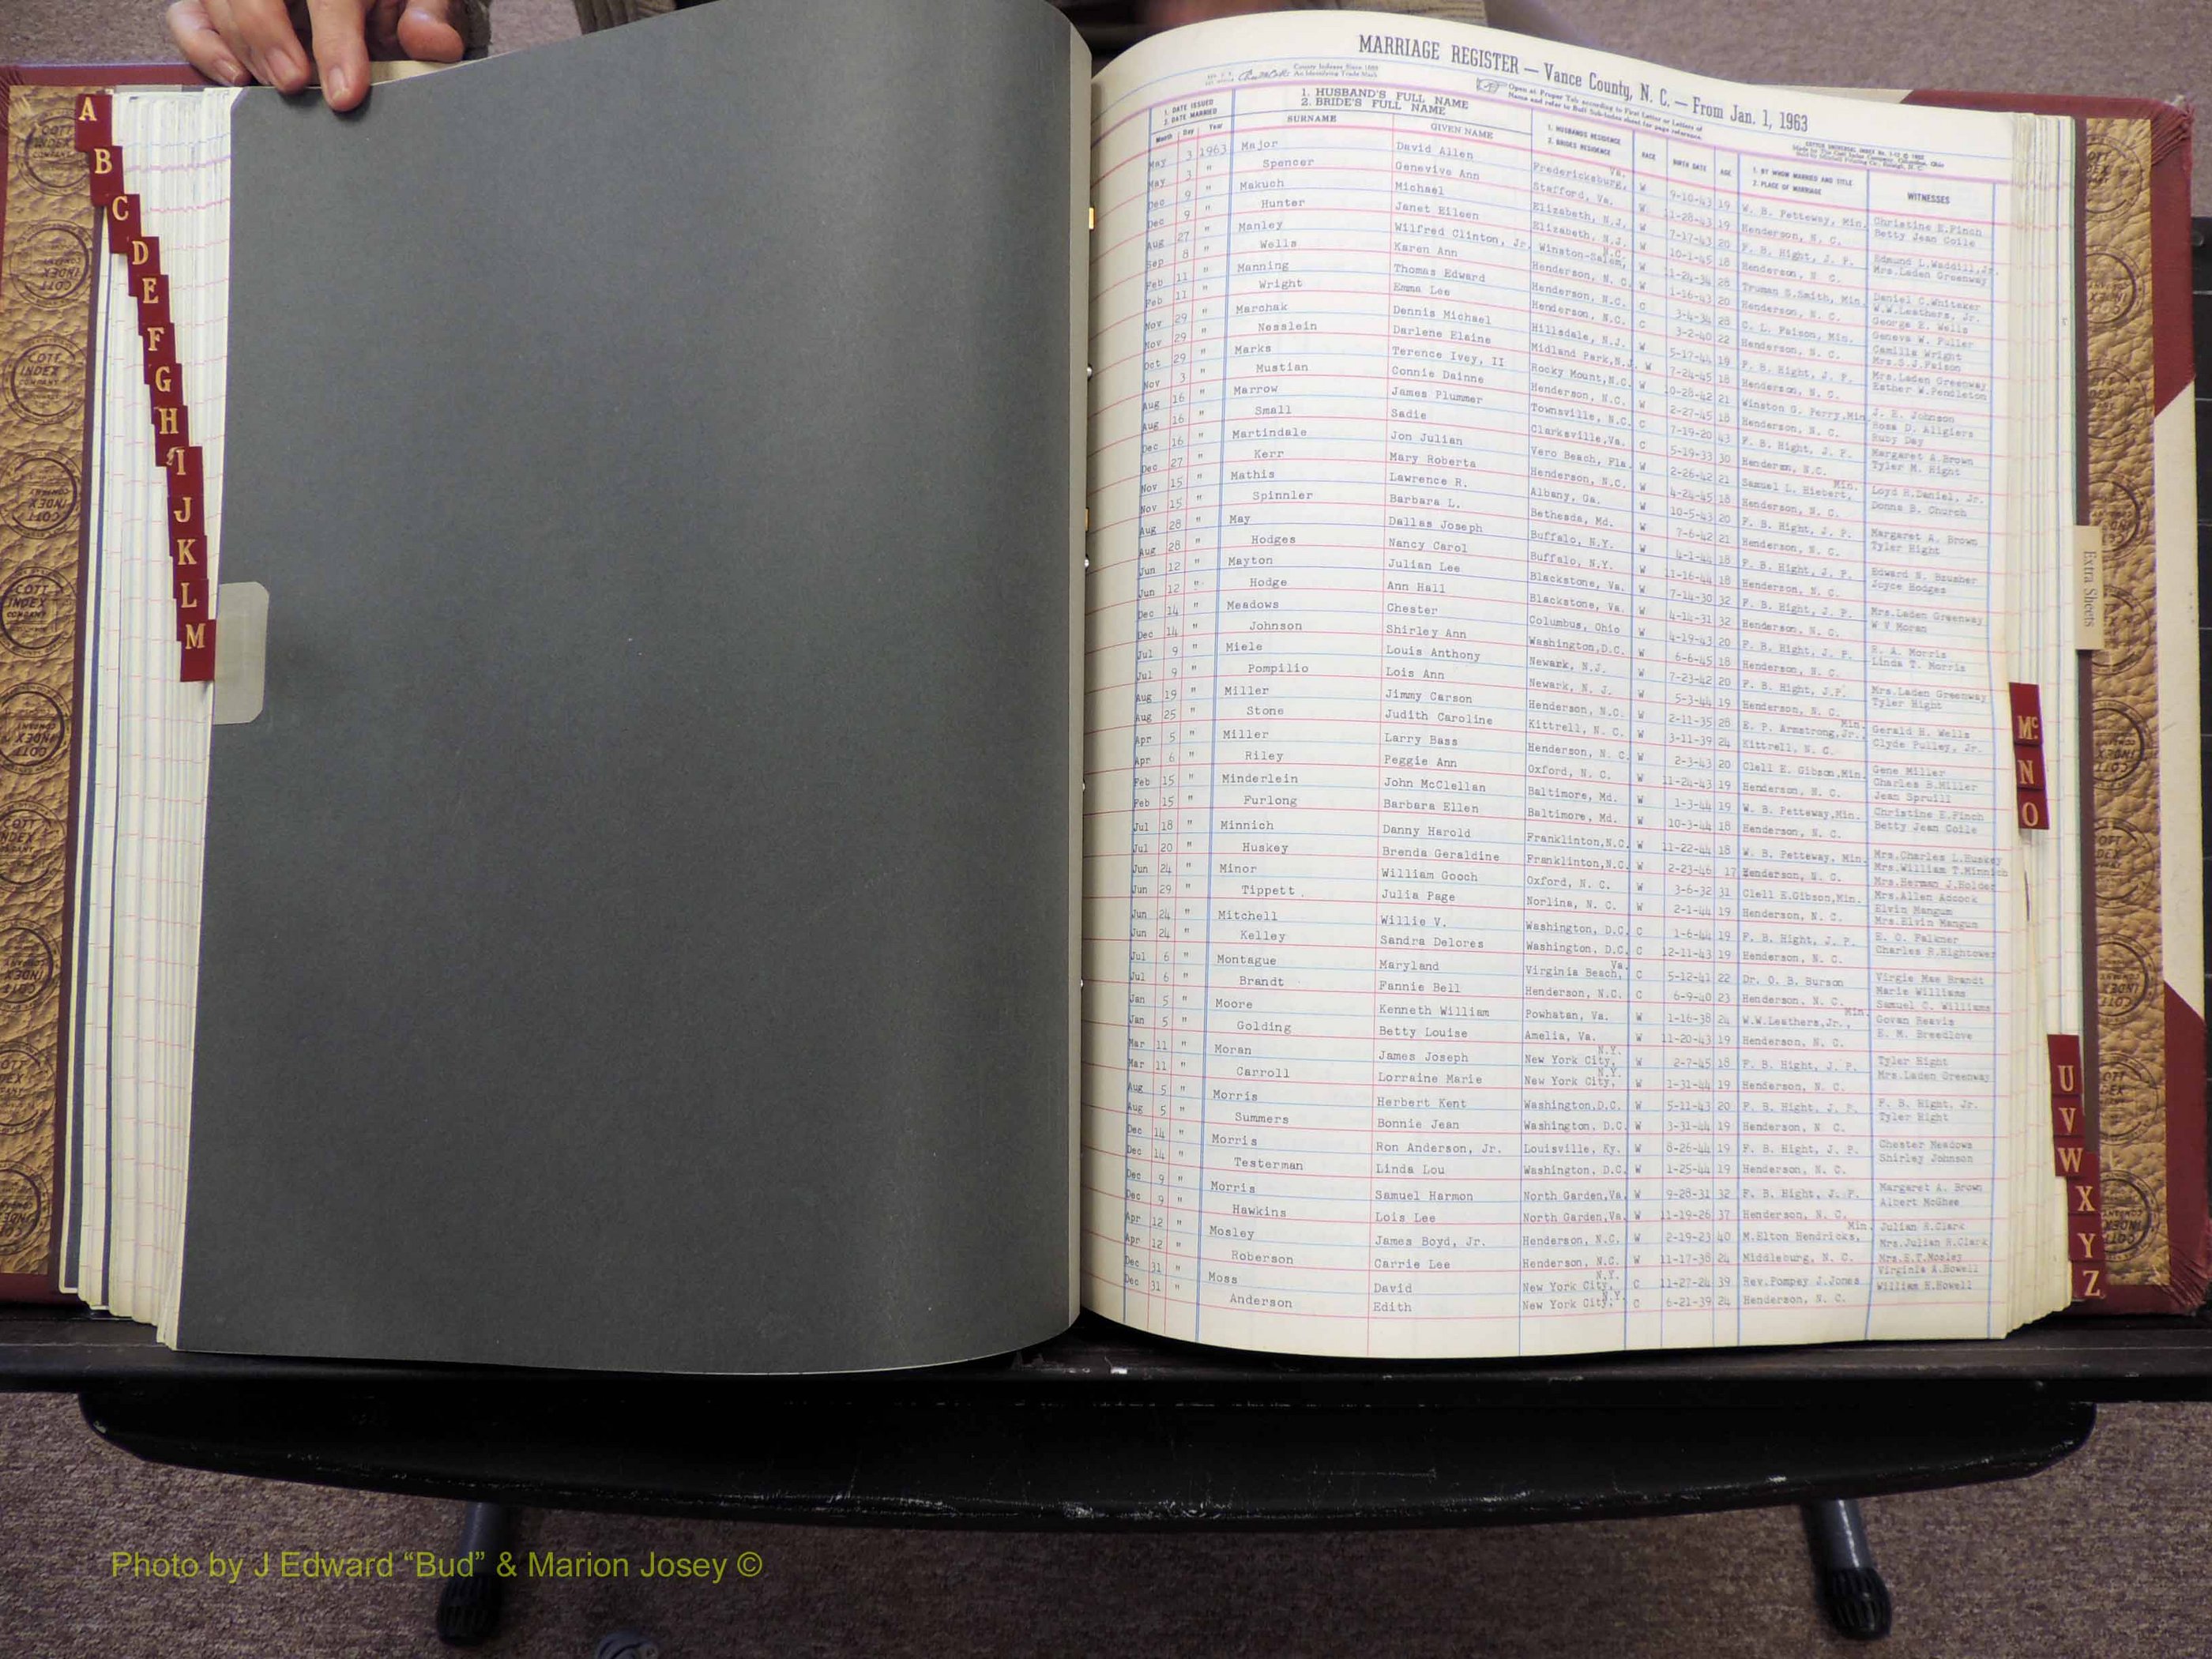 A
B
C
D
E
F
G
H
I
J
K
L
M
MARRIAGE REGISTER — Vance County, N. C. — From Jan. 1, 1963
Open at Proper Tab according to First Letter or Letters of
Name and refer to Buff Sub-Index sheet for page reference.
1. DATE ISSUED
2. DATE MARRIED
Month Day Year
1. HUSBAND'S FULL NAME
2. BRIDE'S FULL NAME
SURNAME GIVEN NAME
1. HUSBANDS RESIDENCE
2. BRIDES RESIDENCE
RACE BIRTH DATE AGE
1. BY WHOM MARRIED AND TITLE
2. PLACE OF MARRIAGE
WITNESSES
May 3 1963 Major David Allen Fredericksburg, Va. W 9-10-43 19 W. B. Petteway, Min. Christine E.Finch
May 3 " Spencer Genevive Ann Stafford, Va. W 11-28-43 19 Henderson, N. C. Betty Jean Coile
Dec 9 " Makuch Michael Elizabeth, N.J. W 7-17-43 20 F. B. Hight, J. P. Edmund L.Waddill,Jr.
Dec 9 " Hunter Janet Eileen Elizabeth, N.J. W 10-1-45 18 Henderson, N. C. Mrs.Laden Greenway
Aug 27 " Manley Wilfred Clinton, Jr. Winston-Salem, N.C. W 11-24-34 28 Truman S.Smith, Min. Daniel C.Whitaker
Sep 8 " Wells Karen Ann Henderson, N. C. W 1-16-43 20 Henderson, N. C. W.W.Leathers, Jr.
George E. Wells
Feb 11 " Manning Thomas Edward Henderson, N.C. C 3-4-34 28 C. L. Faison, Min. Geneva W. Fuller
Feb 11 " Wright Emma Lee Henderson, N.C. C 3-2-40 22 Henderson, N. C. Camilla Wright
Mrs.S.J.Faison
Nov 29 " Marchak Dennis Michael Hillsdale, N.J. W 5-17-44 19 F. B. Hight, J. P. Mrs.Laden Greenway
Nov 29 " Nesslein Darlene Elaine Midland Park,N.J. W 7-24-45 18 Henderson, N. C. Esther W.Pendleton
Oct 29 " Marks Terence Ivey, II Rocky Mount,N.C. W 10-28-42 21 Winston G. Perry,Min. J. E. Johnson
Nov 3 " Mustian Connie Dainne Henderson, N.C. W 2-27-45 18 Henderson, N. C. Rosa D. Allgiers
Ruby Day
Aug 16 " Marrow James Plummer Townsville, N.C. C 7-19-20 43 F. B. Hight, J. P. Margaret A.Brown
Aug 16 " Small Sadie Clarksville,Va. C 5-19-33 30 Henderson, N.C. Tyler M. Hight
Dec 16 " Martindale Jon Julian Vero Beach, Fla. W 2-26-42 21 Samuel L. Hiebert, Min. Loyd H.Daniel, Jr.
Dec 27 " Kerr Mary Roberta Henderson, N.C. W 4-24-45 18 Henderson, N. C. Donna B. Church
Nov 15 " Mathis Lawrence R. Albany, Ga. W 10-5-43 20 F. B. Hight, J. P. Margaret A. Brown
Nov 15 " Spinnler Barbara L. Bethesda, Md. W 7-6-42 21 Henderson, N. C. Tyler Hight
Aug 28 " May Dallas Joseph Buffalo, N.Y. W 4-1-44 18 F. B. Hight, J. P.
Aug 28 " Hodges Nancy Carol Buffalo, N.Y. W 11-16-44 18 Henderson, N. C. Joyce Hodges
Jun 12 " Mayton Julian Lee Blackstone, Va. W 7-14-30 32 F. B. Hight, J. P. Mrs.Laden Greenway
Jun 12 " Hodge Ann Hall Blackstone, Va. W 4-14-31 32 Henderson, N. C. W V Moran
Dec 14 " Meadows Chester Columbus, Ohio W 4-19-43 20 F. B. Hight, J. P. R. A. Morris
Dec 14 " Johnson Shirley Ann Washington,D.C. W 6-6-45 18 Henderson, N. C. Linda T. Morris
Jul 9 " Miele Louis Anthony Newark, N.J. W 7-23-42 20 F. B. Hight, J.P. Mrs.Laden Greenway
Jul 9 " Pompilio Lois Ann Newark, N. J. W 5-3-44 19 Henderson, N. C. Tyler Hight
Aug 19 " Miller Jimmy Carson Henderson, N.C. W 2-11-35 28 E. P. Armstrong,Jr., Min. Gerald H. Wells
Aug 25 " Stone Judith Caroline Kittrell, N. C. W 3-11-39 24 Kittrell, N. C. Clyde Pulley, Jr.
Apr 5 " Miller Larry Bass Henderson, N. C. W 2-3-43 20 Clell E. Gibson,Min. Gene Miller
Apr 6 " Riley Peggie Ann Oxford, N. C. W 11-24-43 19 Henderson, N. C. Charles B.Miller
Jean Spruill
Feb 15 " Minderlein John McClellan Baltimore, Md. W 1-3-44 19 W. B. Petteway,Min. Christine E.Finch
Feb 15 " Furlong Barbara Ellen Baltimore, Md. W 10-3-44 18 Henderson, N. C. Betty Jean Coile
Jul 18 " Minnich Danny Harold Franklinton,N.C. W 11-22-44 18 W. B. Petteway, Min. Mrs.Charles L.Huskey
Jul 20 " Huskey Brenda Geraldine Franklinton,N.C. W 2-23-46 17 Henderson, N. C. Mrs.William T.Minnich
Mrs.Herman J.Holder
Jun 24 " Minor William Gooch Oxford, N. C. W 3-6-32 31 Clell E.Gibson,Min. Mrs.Allen Adcock
Jun 29 " Tippett Julia Page Norlina, N. C. W 2-1-44 19 Henderson, N. C. Elvin Mangum
Mrs.Elvin Mangum
Jun 24 " Mitchell Willie V. Washington, D.C. C 1-6-44 19 F. B. Hight, J. P. E. O. Falkner
Jun 24 " Kelley Sandra Delores Washington, D.C. C 12-11-43 19 Henderson, N. C. Charles R.Hightower
Jul 6 " Montague Maryland Virginia Beach, Va. C 5-12-41 22 Dr. O. B. Burson Virgie Mae Brandt
Jul 6 " Brandt Fannie Bell Henderson, N.C. C 6-9-40 23 Henderson, N. C. Marie Williams
Samuel C. Williams
Jan 5 " Moore Kenneth William Powhatan, Va. W 1-16-38 24 W.W.Leathers,Jr., Min. Govan Reavis
Jan 5 " Golding Betty Louise Amelia, Va. W 11-20-43 19 Henderson, N. C. E. M. Breedlove
Mar 11 " Moran James Joseph New York City, N.Y. W 2-7-45 18 F. B. Hight, J. P. Tyler Hight
Mar 11 " Carroll Lorraine Marie New York City, N.Y. W 1-31-44 19 Henderson, N. C. Mrs.Laden Greenway
Aug 5 " Morris Herbert Kent Washington,D.C. W 5-11-43 20 F. B. Hight, J. P. F. B. Hight, Jr.
Aug 5 " Summers Bonnie Jean Washington, D.C. W 3-31-44 19 Henderson, N C. Tyler Hight
Dec 14 " Morris Ron Anderson, Jr. Louisville, Ky. W 8-26-44 19 F. B. Hight, J. P. Chester Meadows
Dec 14 " Testerman Linda Lou Washington, D.C. W 1-25-44 19 Henderson, N. C. Shirley Johnson
Dec 9 " Morris Samuel Harmon North Garden,Va. W 9-28-31 32 F. B. Hight, J. P. Margaret A. Brown
Dec 9 " Hawkins Lois Lee North Garden,Va. W 11-19-26 37 Henderson, N. C. Albert McGhee
Apr 12 " Mosley James Boyd, Jr. Henderson, N.C. W 2-19-23 40 M.Elton Hendricks, Min. Julian R.Clark
Mrs.Julian R.Clark
Apr 12 " Roberson Carrie Lee Henderson, N.C. W 11-17-38 24 Middleburg, N. C. Mrs.E.T.Mosley
Dec 31 " Moss David New York City, N.Y. C 11-27-24 39 Rev.Pompey J.Jones Virginia A.Howell
Dec 31 " Anderson Edith New York City, N.Y. C 6-21-39 24 Henderson, N. C. William H.Howell
Extra Sheets
Mc
N
O
U
V
W
X
Y
Z
Photo by J Edward “Bud” & Marion Josey ©